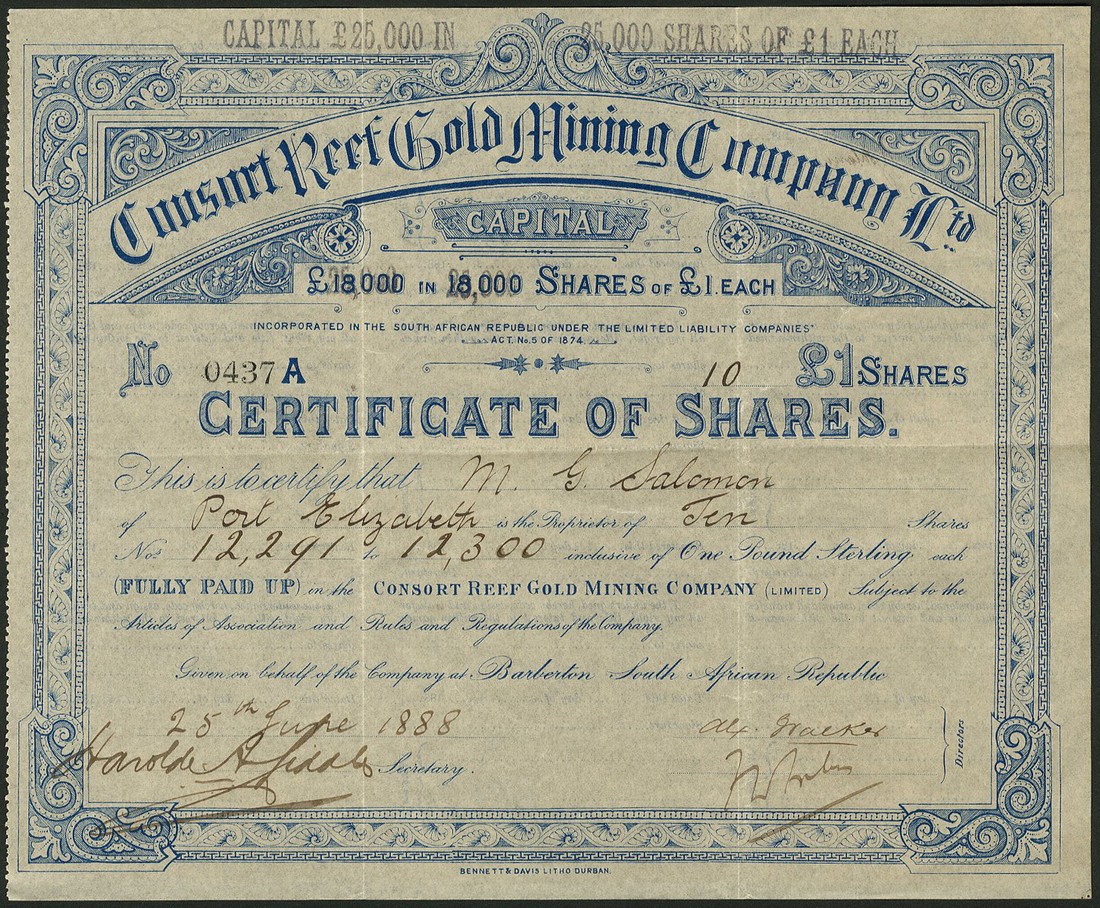 CAPITAL £25,000 IN 25,000 SHARES OF £1 EACH
Consort Reef Gold Mining Company Ltd
CAPITAL
£18,000 IN 18,000 SHARES OF £1. EACH
25,000 25,000
INCORPORATED IN THE SOUTH AFRICAN REPUBLIC UNDER "THE LIMITED LIABILITY COMPANIES"
ACT. No. 5 OF 1874.
No 0437 A 10 £1 SHARES
CERTIFICATE OF SHARES.
This is to certify that M. G. Salomon
of Port Elizabeth is the Proprietor of Ten Shares
Nos. 12,291 to 12,300 inclusive of One Pound Sterling each
(FULLY PAID UP) in the CONSORT REEF GOLD MINING COMPANY (LIMITED) Subject to the
Articles of Association and Rules and Regulations of the Company.
Given on behalf of the Company at Barberton South African Republic
25th June 1888
Secretary.
Directors
BENNETT & DAVIS LITHO DURBAN.